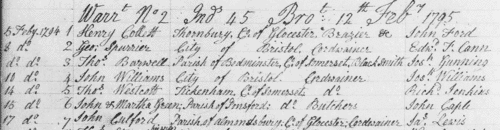 Warrt. No 2 Ind 45 Bro. 12th Feby 1795
5 Feby. 1794 1 Henry Collett Thornbury, C. of Glocester Brazier & John Ford
8 do. 2 Geo. Spurrier City of Bristol Cordwainer Edwd. T. Cann
do do. 3 Thos. Barwell Parish of Bedminster, C. of Somerset, Black Smith Jos. Gunning
10 do. 4 John Williams City of Bristol Cordwainer Jos. Williams
14 do 5 Thos. Westcott Tickenham, C. of Somerset do. Richd. Jenkins
15 do 6 John & Martha Green, Parish of Butchers John Caple
17 do, 7 John Parish of Almondsbury, C. of Glocester, Cordwainer Jas. Lewis